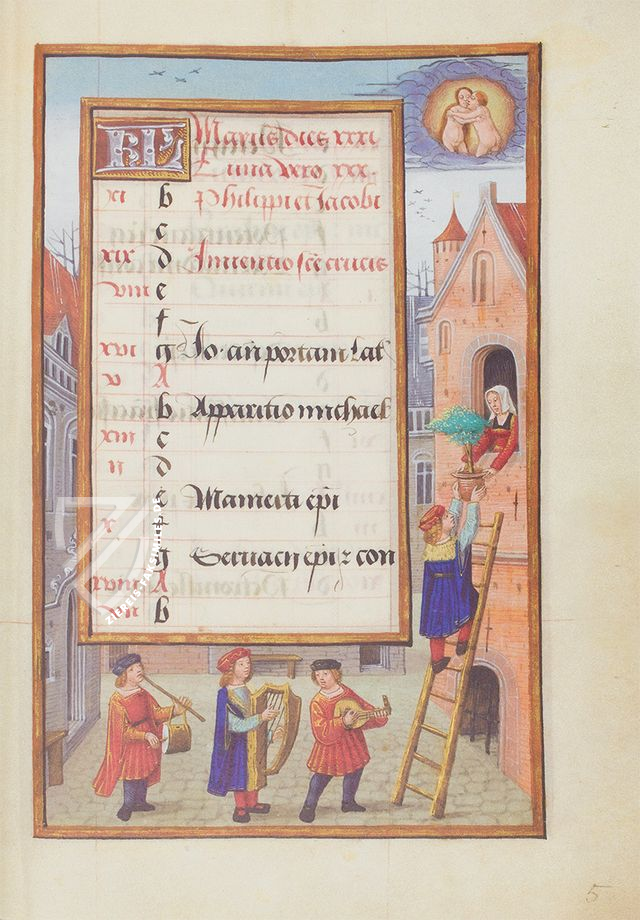 KL Mayus dies xxxi
Luna vero xxx.
xi b Philippi et Jacobi
c
xix d Inventio sce crucis
viii e
f
xvi g Jo. an portam lat
v A
b Apparitio michael
xiii c
ii d
e Mamerti epi
x f
g Servacii epi z con
xviii A
vii b
5